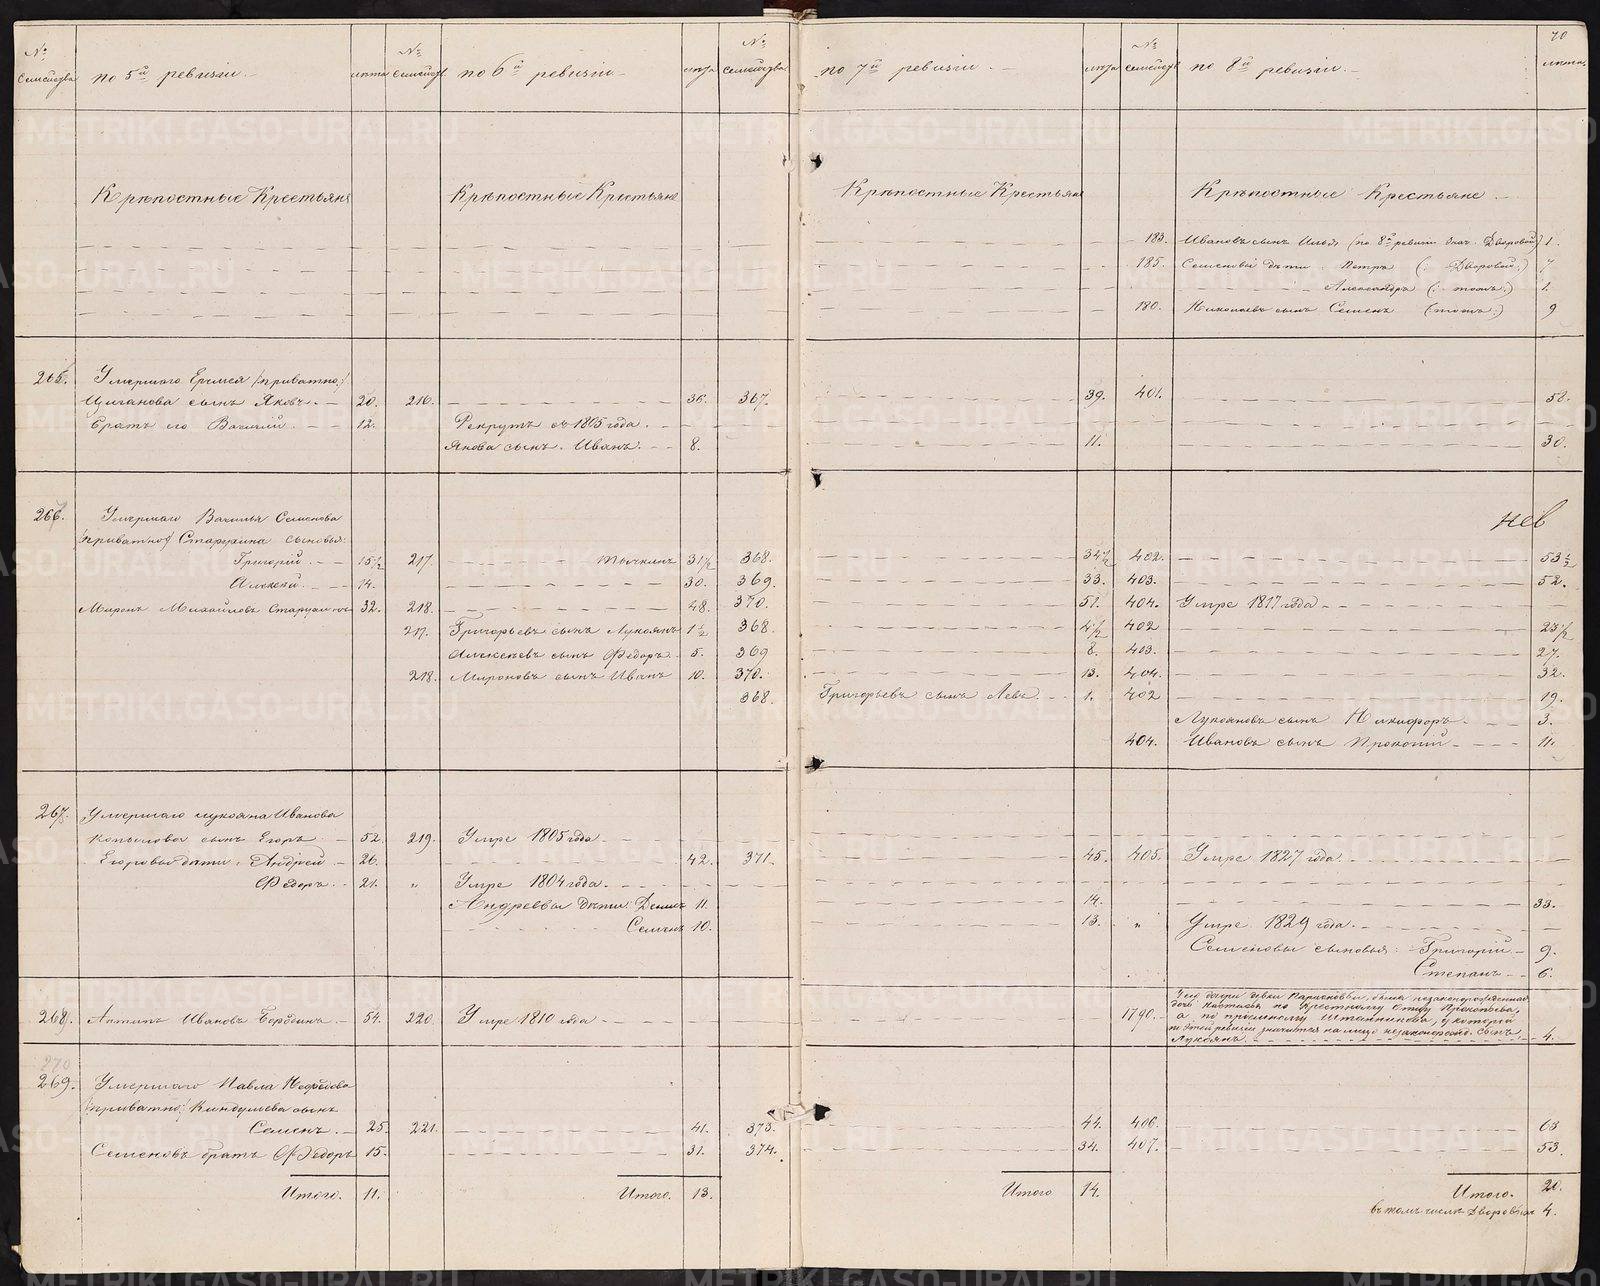 70
№ Семейства
по 5й ревизіи.
лѣта
№ Семейст.
по 6й ревизіи
лѣта
№ Семейства
по 7й ревизіи.
лѣта
№ Семейст.
по 8й ревизіи.
лѣта.
Крѣпостные Крестьяне
Крѣпостные Крестьяне
Крѣпостные Крестьяне
Крѣпостные Крестьяне
183. Ивановъ сынъ Илья (по 8й ревизіи знач. Дворовой) 1.
185. Семеновы дѣти Петръ (: Дворовой:) 7
Александръ (: тожъ:) 1.
180. Николаевъ сынъ Семенъ (тожъ:) 9
265. Умершаго Еремея (приватно)
Циганова сынъ Яковъ. 20. 216. 36. 367. 39. 401. 58.
Братъ его Василій. 12. Рекрутъ съ 1805 года.
Якова сынъ. Иванъ. 8. 11. 30.
нев
266. Умершаго Василья Семенова
(приватно) Старухина сыновья:
Григорій. 15½ 217. Тычкинъ 31½ 368. 34½ 402. 53½
Алексей. 14. 30. 369. 33. 403. 52.
Миронъ Михайловъ 32. 218. 48. 370. 51. 404. Умре 1817 года
217. Григорьевъ сынъ Лукоянъ 1½ 368 4½ 402 23½
Алексеевъ сынъ Федоръ 5. 369 8. 403. 27.
218. Мироновъ сынъ Иванъ 10. 370. 13. 404. 32.
368. Григорьевъ сынъ Левъ 1. 402 19.
Лукояновъ сынъ Никифоръ. 3.
404. Ивановъ сынъ Прокопій 11.
267. Умершаго Лукояна Иванова
Копылова сынъ Егоръ 52. 219. Умре 1805 года
Егоровы дѣти: Андрей 26. 42. 371. 45. 405. Умре 1827 года.
Федоръ. 21. " Умре 1804 года.
Андреевы дѣти: Денисъ 11. 14. 33.
Семенъ 10. 13. " Умре 1829 года.
Семеновы сыновья: Григорій 9.
Степанъ 6.
268. Антипъ Ивановъ Бородинъ. 54. 220. Умре 1810 года
1790. У его дочери девки Парасковьи, была незаконорожденная
дочь Настасья по Крестному Отцу Прокопьева,
а по прозванію, у которой
по этой ревизіи значится на лицо незаконорожд. сынъ
Лукоянъ. 4.
270
269. Умершаго Павла Нефедова
(приватно) Киндулева сынъ
Семенъ. 25. 221. 41. 373. 44. 406. 63
Семеновъ братъ Федоръ 15. 31. 374. 34. 407. 53.
Итого. 11.
Итого. 13.
Итого 14.
Итого. 20.
въ томъ числѣ Дворовыхъ 4.
METRIKI.GASO-URAL.RU